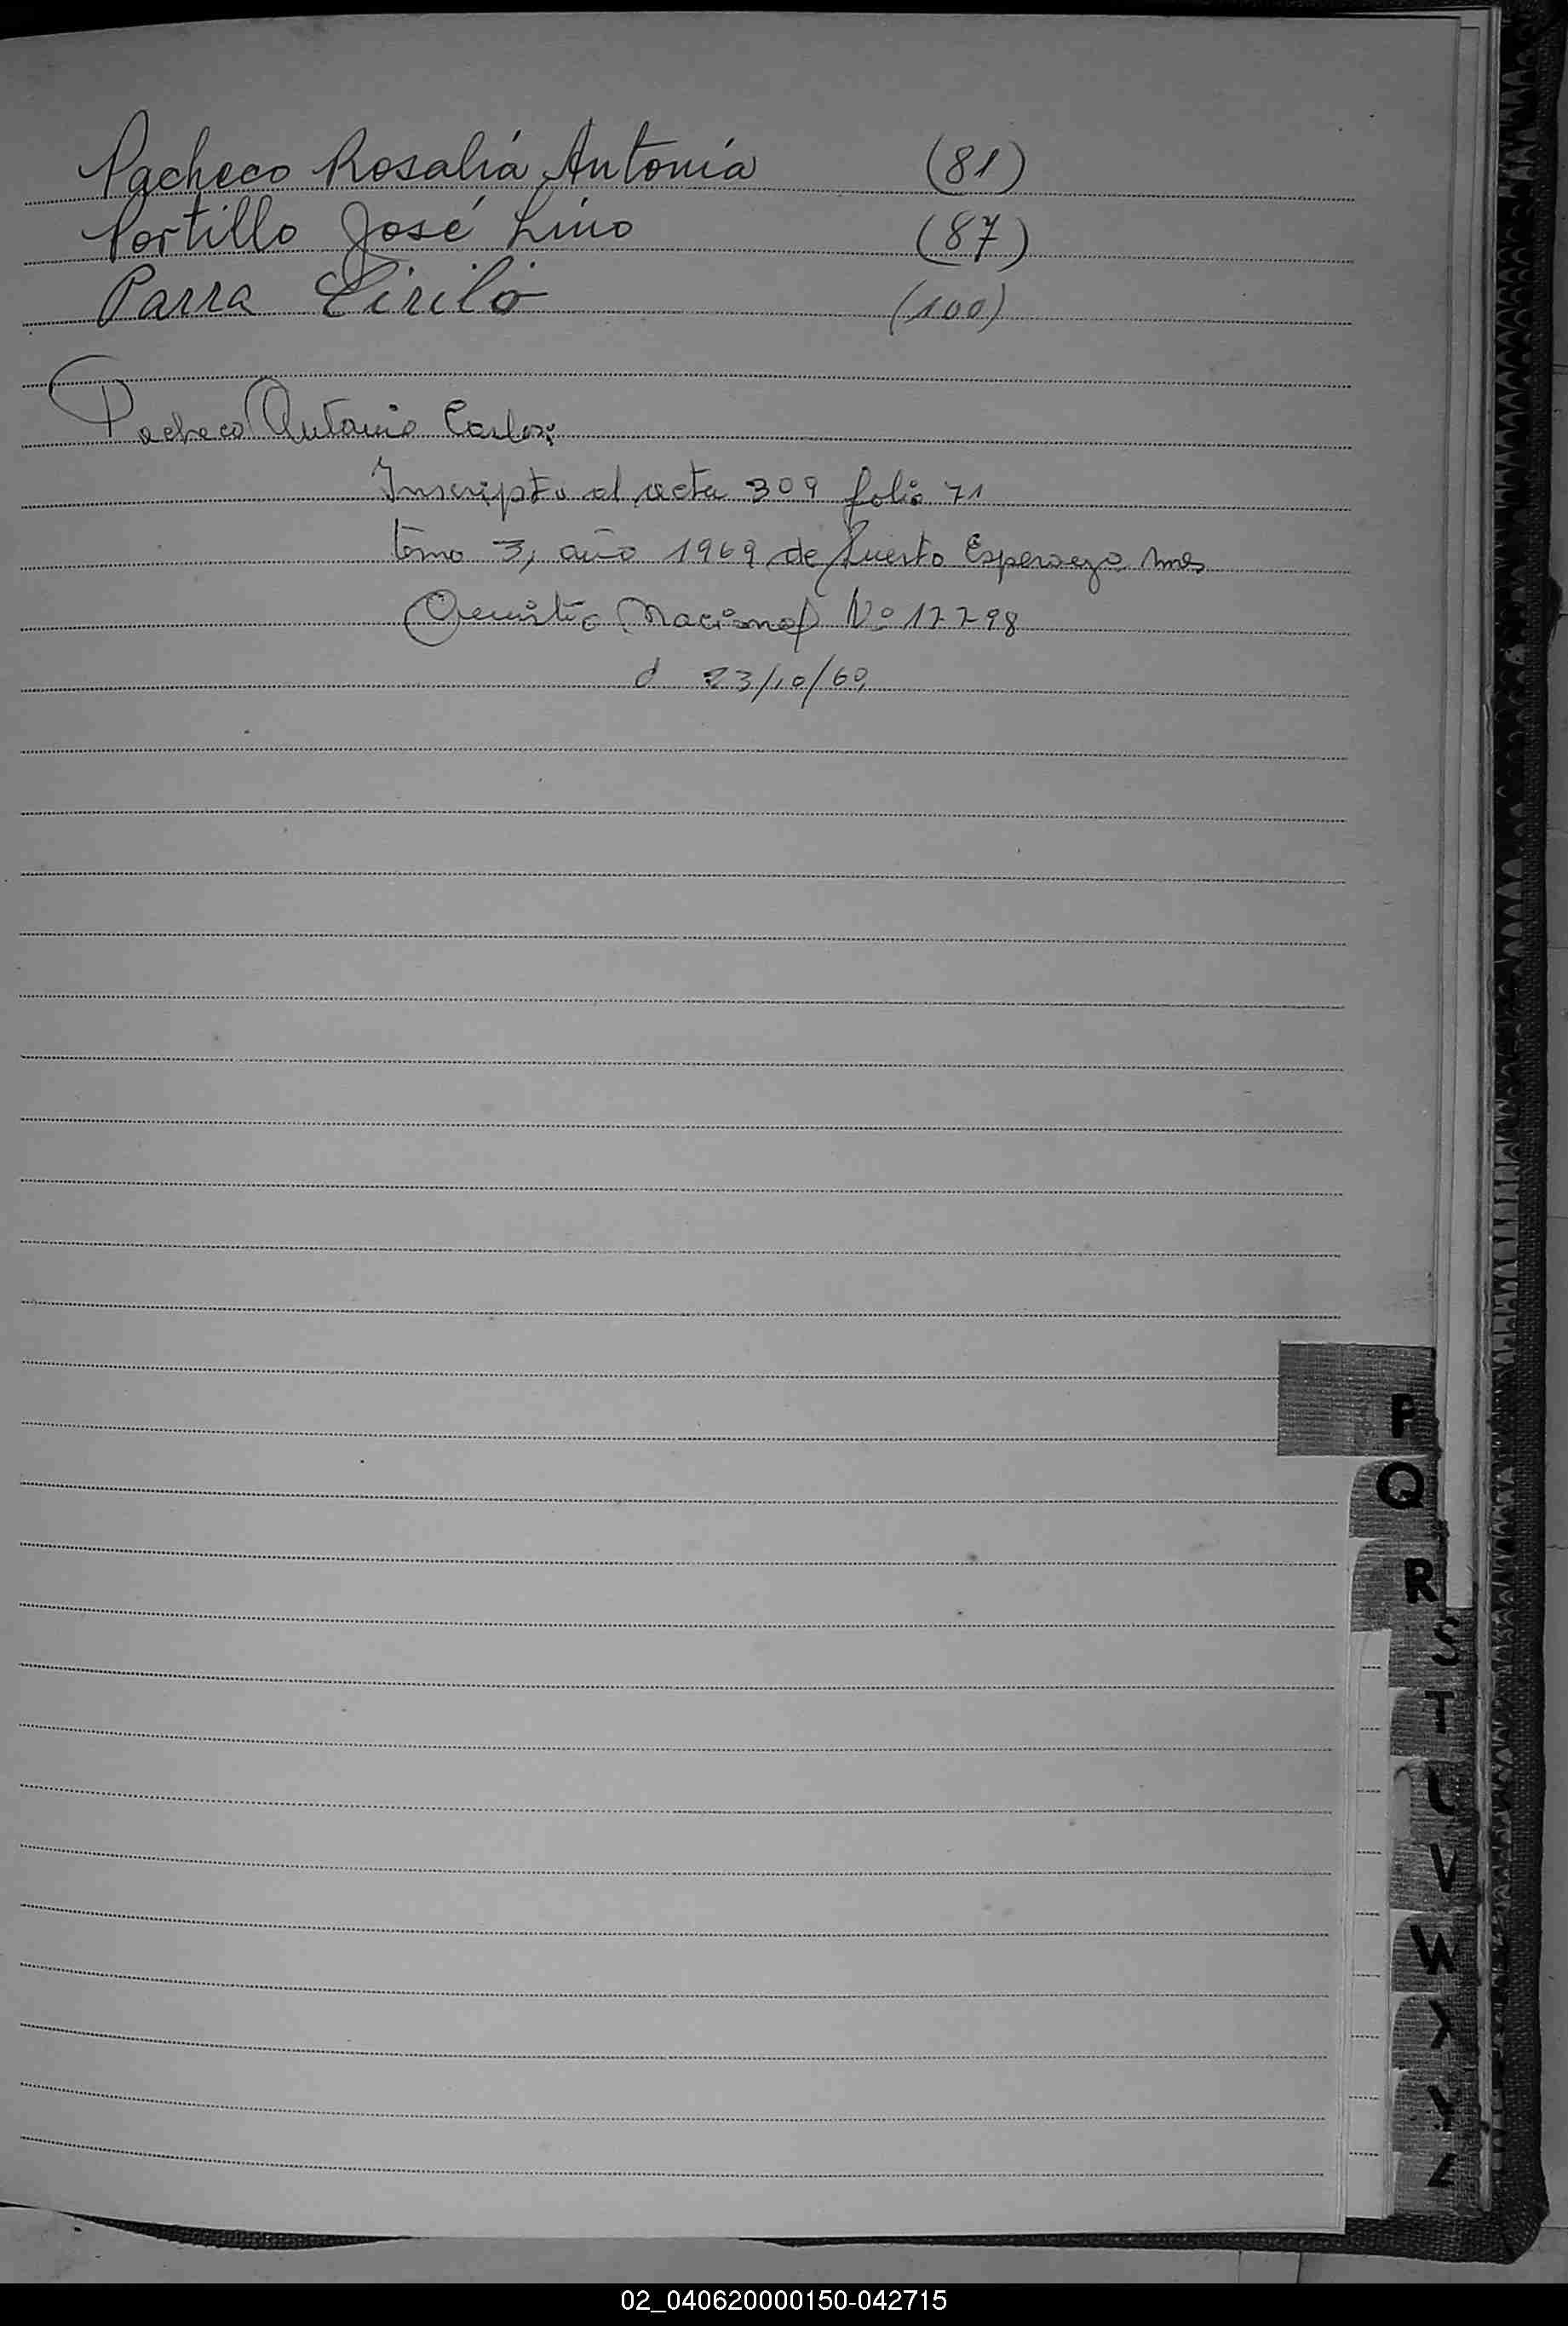 Pacheco Rosalía Antonia (81)
Portillo José Lino (87)
Parra Cirilo (100)
Pacheco Antonio Carlos:
Inscripto al acta 309 folio 71
tomo 3, año 1969 de Puerto Esperanza Mnes
Nacional Nº 17798
d 23/10/69
P
Q
R
S
T
V
W
X
Y
Z
02_040620000150-042715